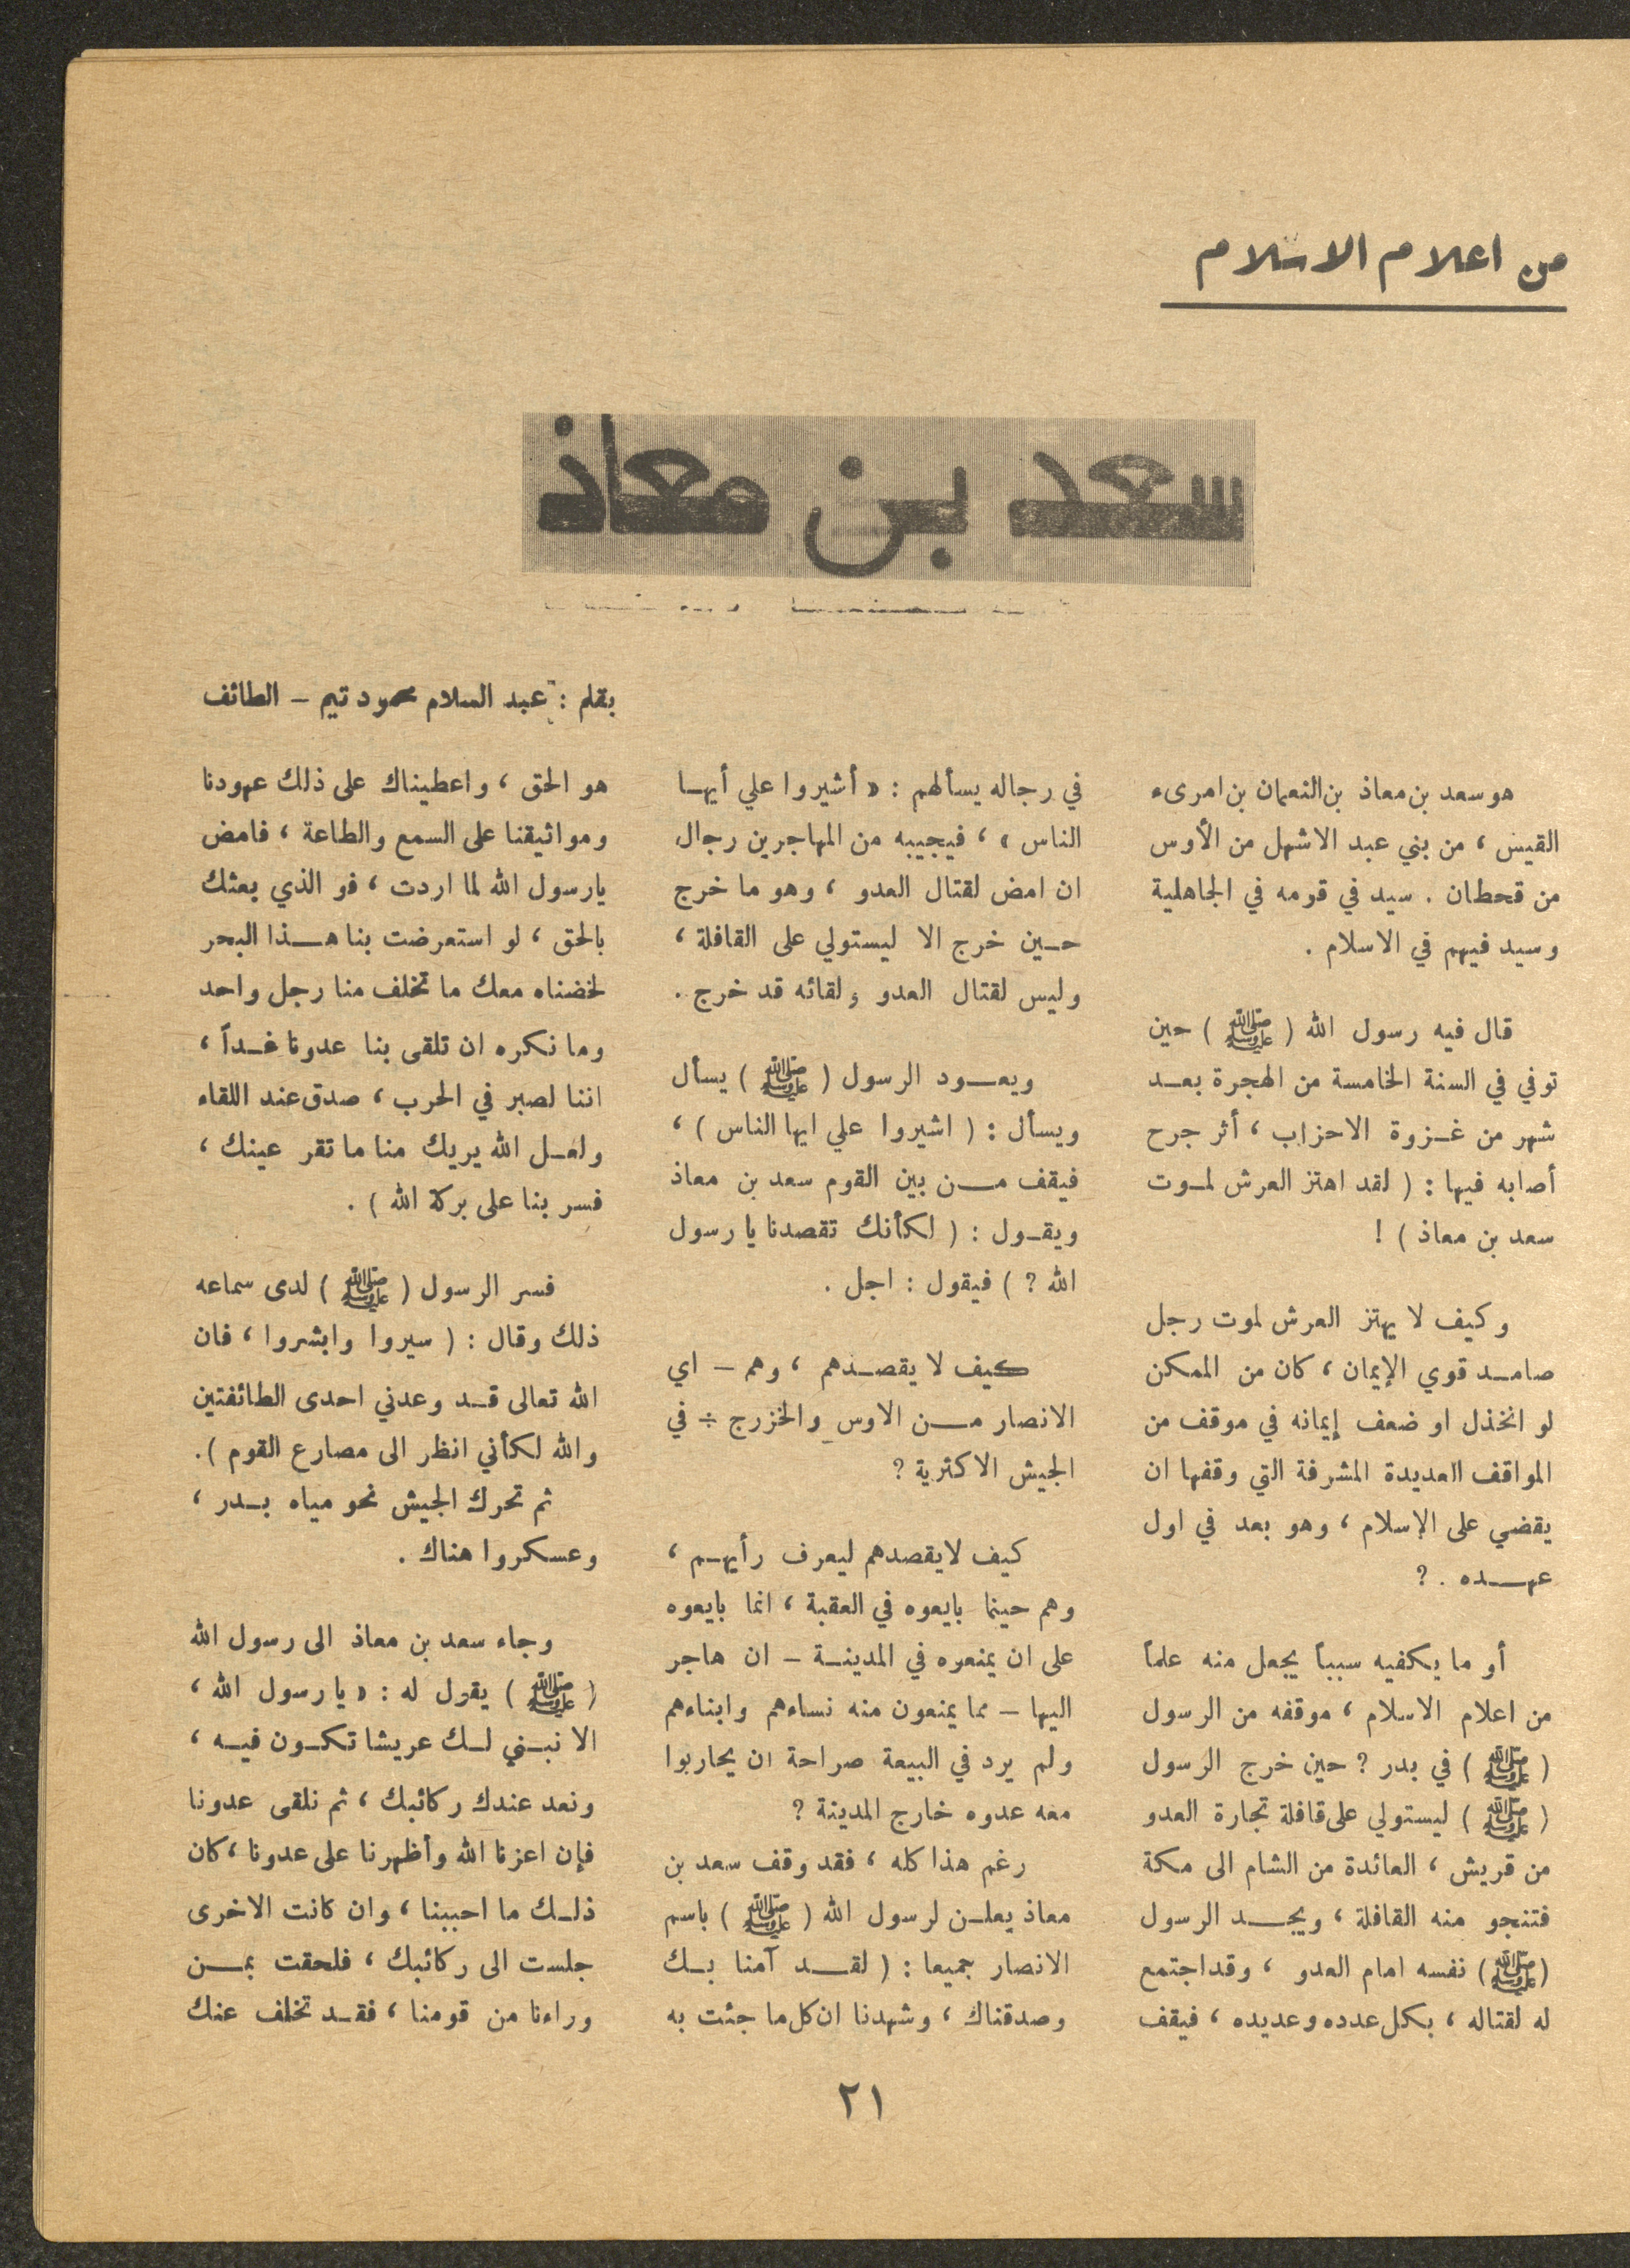 من اعلام الاسلام
سعد بن معاذ
بقلم : عبد السلام محمود تيم – الطائف
هو سعد بن معاذ بن النعمان بن امرىء
القيس ، من بني عبد الاشهل من الأوس
من قحطان . سيد في قومه في الجاهلية
وسيد فيهم في الاسلام .
قال فيه رسول الله ( ﷺ ) حين
توفي في السنة الخامسة من الهجرة بعد
شهر من غزوة الاحزاب ، أثر جرح
أصابه فيها : ( لقد اهتز العرش لموت
سعد بن معاذ ) !
وكيف لا يهتز العرش لموت رجل
صامد قوي الإيمان ، كان من الممكن
لو انخذل او ضعف إيمانه في موقف من
المواقف العديدة المشرفة التي وقفها ان
يقضي على الإسلام ، وهو بعد في اول
عهده . ?
أو ما يكفيه سبباً يجعل منه علماً
من اعلام الاسلام ، موقفه من الرسول
( ﷺ ) في بدر ? حين خرج الرسول
( ﷺ ) ليستولي على قافلة تجارة العدو
من قريش ، العائدة من الشام الى مكة
فتنجو منه القافلة ، ويجد الرسول
( ﷺ ) نفسه امام العدو ، وقد اجتمع
له لقتاله ، بكل عدده وعديده ، فيقف
في رجاله يسألهم : « أشيروا علي أيها
الناس » ، فيجيبه من المهاجرين رجال
ان امض لقتال العدو ، وهو ما خرج
حين خرج الا ليستولي على القافلة ،
وليس لقتال العدو ولقائه قد خرج .
ويعود الرسول ( ﷺ ) يسأل
ويسأل : ( اشيروا علي ايها الناس ) ،
فيقف من بين القوم سعد بن معاذ
ويقول : ( لكأنك تقصدنا يا رسول
الله ? ) فيقول : اجل .
كيف لا يقصدهم ، وهم – اي
الانصار من الاوس والخزرج ÷ في
الجيش الاكثرية ?
كيف لايقصدهم ليعرف رأيهم ،
وهم حينما بايعوه في العقبة ، انما بايعوه
على ان يمنعوه في المدينة – ان هاجر
اليها – مما يمنعون منه نساءهم وابناءهم
ولم يرد في البيعة صراحة ان يحاربوا
معه عدوه خارج المدينة ?
رغم هذا كله ، فقد وقف سعد بن
معاذ يعلن لرسول الله ( ﷺ ) باسم
الانصار جميعا : ( لقد آمنا بك
وصدقناك ، وشهدنا ان كل ما جئت به
هو الحق ، واعطيناك على ذلك عهودنا
ومواثيقنا على السمع والطاعة ، فامض
يارسول الله لما اردت ، فو الذي بعثك
بالحق ، لو استعرضت بنا هذا البحر
لخضناه معك ما تخلف منا رجل واحد
وما نكره ان تلقى بنا عدونا غداً ،
اننا لصبر في الحرب ، صدق عند اللقاء
ولعل الله يريك منا ما تقر عينك ،
فسر بنا على بركة الله ) .
فسر الرسول ( ﷺ ) لدى سماعه
ذلك وقال : ( سيروا وابشروا ، فان
الله تعالى قد وعدني احدى الطائفتين
والله لكأني انظر الى مصارع القوم ) .
ثم تحرك الجيش نحو مياه بدر ،
وعسكروا هناك .
وجاء سعد بن معاذ الى رسول الله
( ﷺ ) يقول له : « يا رسول الله ،
الا نبني لك عريشا تكون فيه ،
ونعد عندك ركائبك ، ثم نلقى عدونا
فإن اعزنا الله وأظهرنا على عدونا ، كان
ذلك ما احببنا ، وان كانت الاخرى
جلست الى ركائبك ، فلحقت بمن
وراءنا من قومنا ، فقد تخلف عنك
٢١